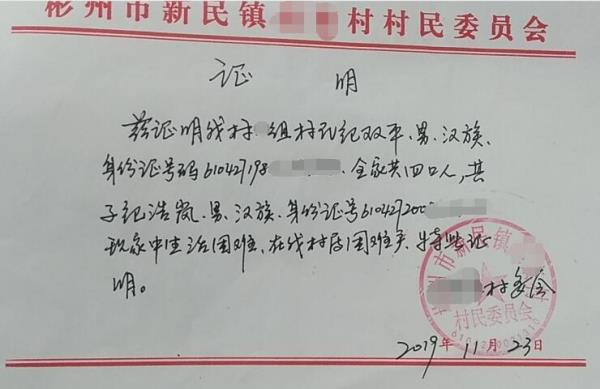 彬州市新民镇村村民委员会
证 明
兹证明我村 组村民纪双平、男、汉族、
身份证号码610427198 全家共四口人,其
子纪浩岚、男、汉族、身份证号610427200
现家中生活困难、在我村属困难户、特此证
明。
村委会
彬州市新民镇
村民委员会
2019年11月23日